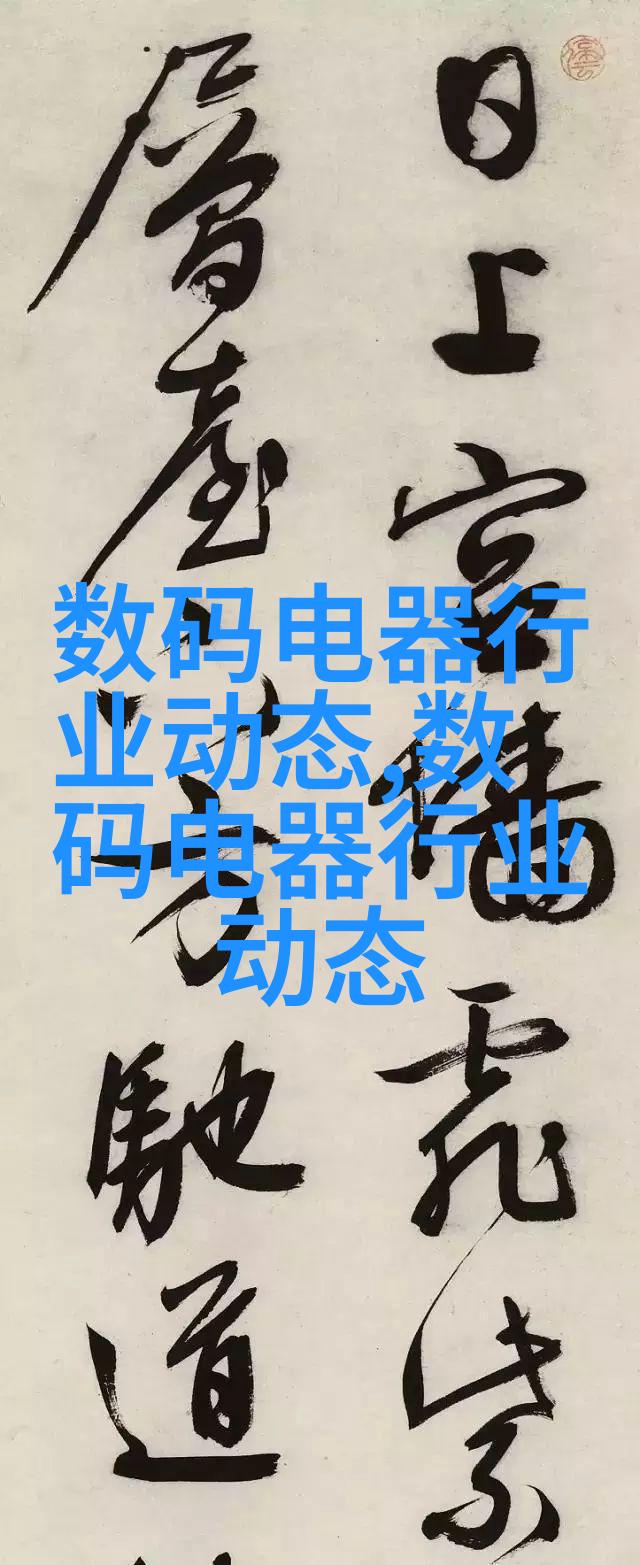 日上宮幡紫
層臺馳道
数码电器行
业动态,数
码电器行业
动态